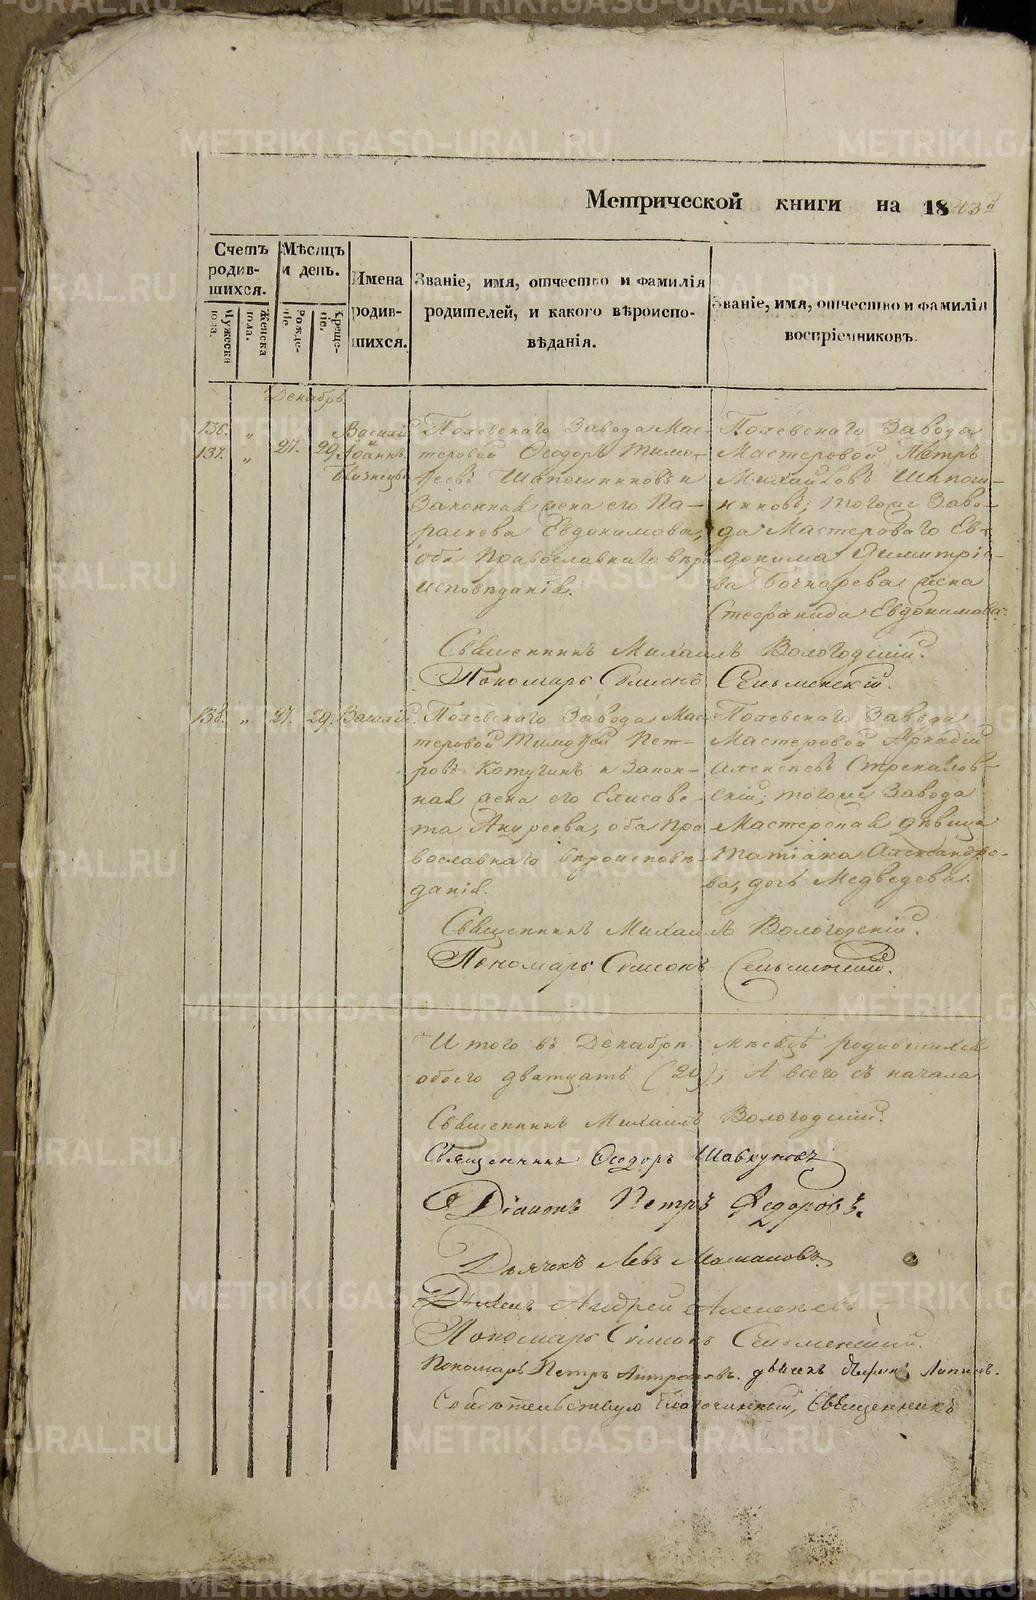 Метрической книги на 1843й
Счетъ родив-шихся.
Мужеска пола.
Женска пола.
Мѣсяцъ и день.
Рожде-нія.
Креще-нія.
Имена родив-шихся.
Званіе, имя, отчество и фамилія
родителей, и какого вѣроиспо-
вѣданія.
Званіе, имя, отчество и фамилія
воспріемниковъ.
Декабрь
136. „ Василій
137. „ 27. 29. Іоаннъ
близнецы
Полевскаго Завода Мас-
теровой Ѳеодоръ Тимо-
ѳеевъ Шапошниковъ и
Законная жена его Па-
раскева Евдокимова,
оба Православнаго вѣро-
исповѣданія.
Полевскаго Завода
Мастеровой Петръ
Михайловъ Шапош-
никовъ; тогоже Заво-
да Мастероваго Ев-
докима Димитріе-
ва Бочкарева жена
Стефанида Евдокимова.
Священникъ Михаилъ Вологодскій.
Пономарь Симонъ
138. „ 27. 29. Василій.
Полевскаго Завода Мас-
теровой Тимоѳей Пет-
ровъ Котугинъ и Закон-
ная жена его Елисаве-
та Андреева, оба Пра-
вославнаго вѣроисповѣ-
данія.
Полевскаго Завода
Мастеровой Аркадій
Алексѣевъ Стрекалов-
скій; тогоже Завода
Мастерская дѣвица
Татіана Александро-
ва, дочь Медведева.
Священникъ Михаилъ Вологодскій.
Пономарь Симонъ
Итого въ Декабрѣ мѣсяцѣ родившихся
обоего дватцать (20); А всего съ начала
Священникъ Михаилъ Вологодскій.
Священникъ Ѳеодоръ Шавкуновъ
Діаконъ Петръ Федоровъ.
Дьячекъ Левъ
Андрей
Пономарь Симонъ
Пономарь Петръ
Свидѣтельствую Благочинный, Священникъ
METRIKI.GASO-URAL.RU